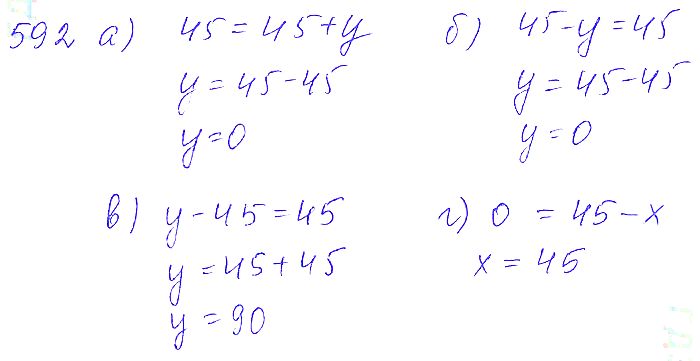 592 а) 45 = 45 + y б) 45 - y = 45
y = 45 - 45 y = 45 - 45
y = 0 y = 0
в) y - 45 = 45 г) 0 = 45 - x
y = 45 + 45 x = 45
y = 90